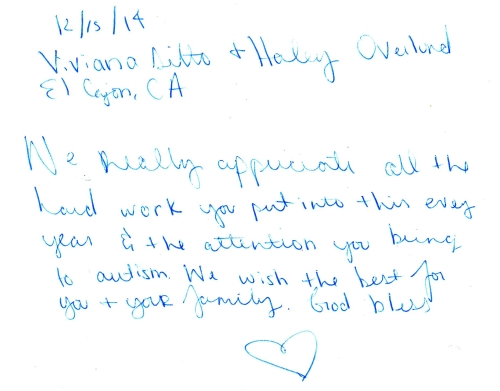 12/15/14
Viviana Ditto + Haley Overlund
El Cajon, CA
We really appriciate all the
hard work you put into this every
year & the attention you bring
to autism. We wish the best for
you + your family. God bless